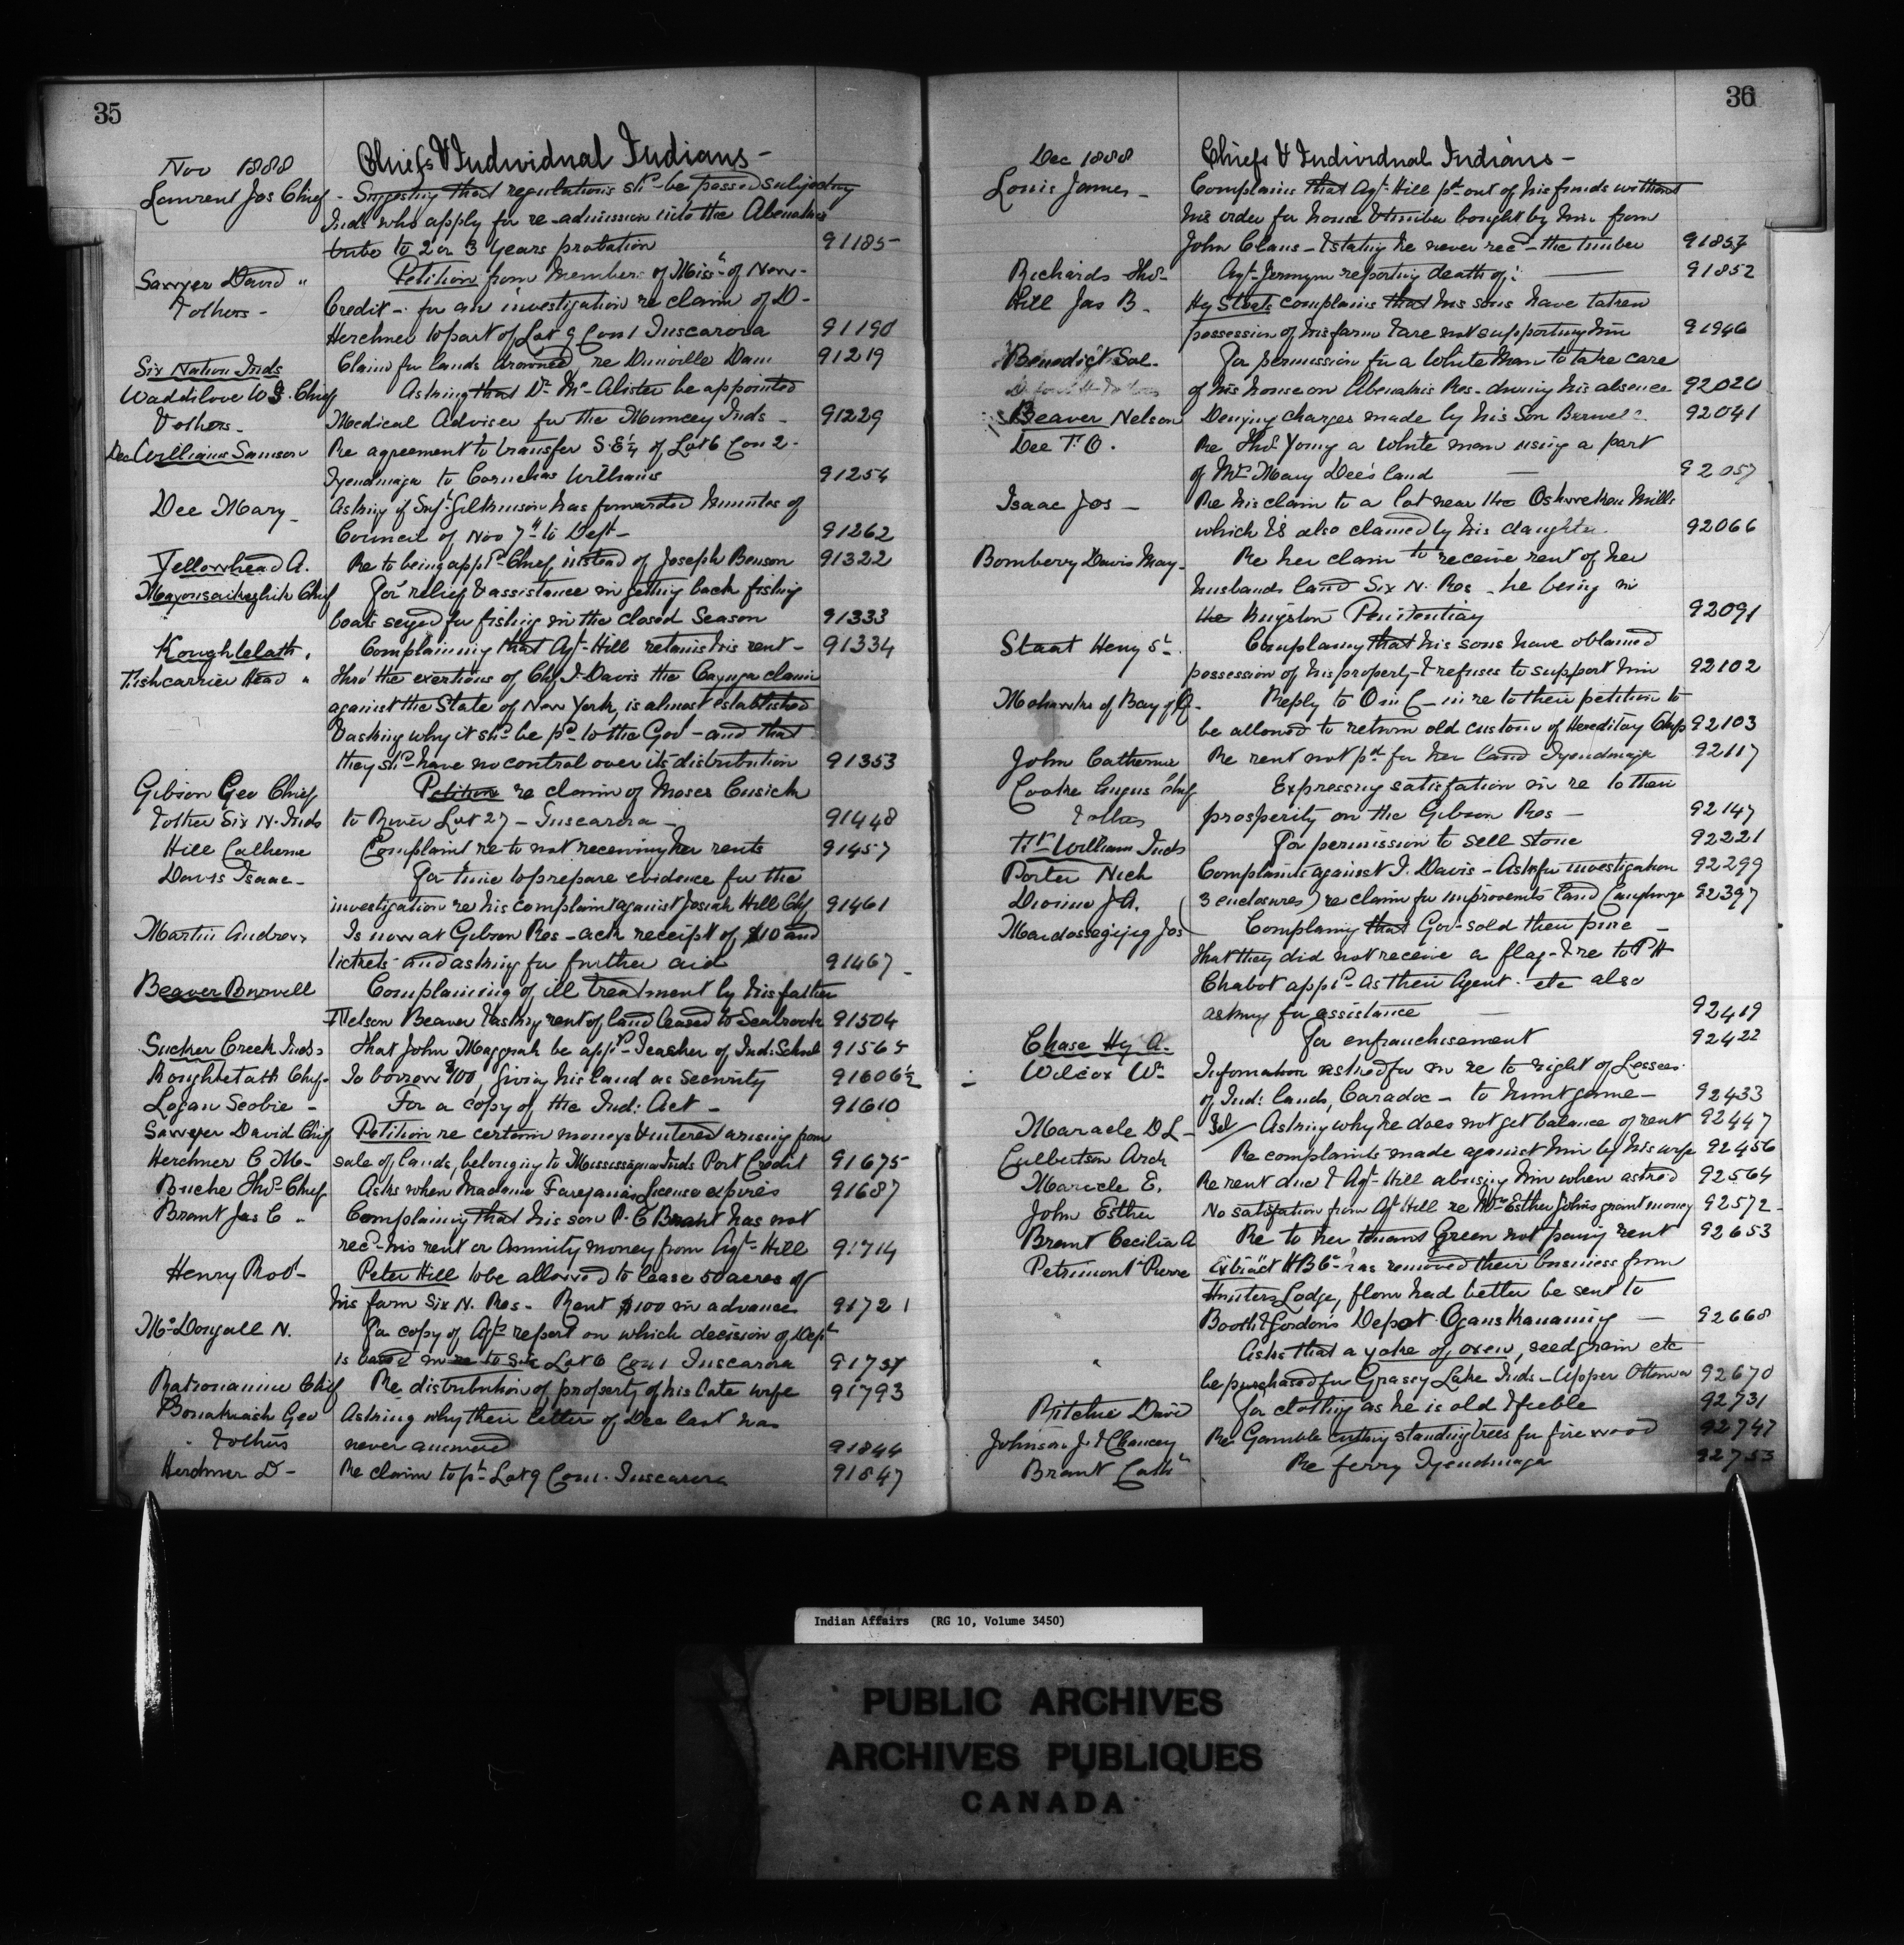 35
Nov 1888 Chiefs & Individual Indians -
Laurent Jos Chief - Suggesting that regulations shd be passed subjecting
Inds who apply for re-admission into the Abenakis
tribe to 2 or 3 years probation 91185
Sawyer David " Petition from Members of Miss. of New-
& others - Credit - for an investigation re claim of D-
Herchmer to part of Lot 9 Con 1 Tuscarora 91190
Six Nation Inds Claim for lands drowned, re Dunville Dam 91219
Waddilove W. Chief Asking that Dr Mc Alister be appointed
& others - Medical Adviser for the Muncey Inds - 91229
Dec Williams Samson Re agreement to transfer S.E¼ of Lot 6 Con 2-
Tyendinaga to Cornelius Williams 91254
Dee Mary - Asking if Supt Gilkinson has forwarded minutes of
Council of Nov 7th to Dept - 91262
Yellowhead A. Re to being appd Chief, instead of Joseph Benson 91322
Chief For relief & assistance in getting back fishing
boats seized for fishing in the closed Season 91333
Complaining that Agt Hill retains his rent - 91334
Fishcarrier Head " Thro' the exertions of Chf I. Davis the Cayuga claim
against the State of New York, is almost established
& asking why it shd be pd to the Govt - and that
they shd have no control over its distribution 91353
Gibson Geo Chief Petition re claim of Moses Cusick
& other Six N. Inds to River Lot 27 - Tuscarora - 91448
Hill Catherine Complaint re to not receiving her rents 91457
Davis Isaac - For time to prepare evidence for the
investigation re his complaint against Josiah Hill Chf 91461
Martin Andrew Is now at Gibson Res - ack receipt of $10 and
tickets - and asking for further aid 91467
Beaver Burwell Complaining of ill treatment by his father
Nelson Beaver & asking rent of land leased to Seabrook 91504
Sucker Creek Inds That John Maggrah be appd Teacher of Ind: School 91565
Chf - To borrow $100, giving his land as Security 91606½
Logan Scobie - For a copy of the Ind: Act - 91610
Sawyer David Chief Petition re certain moneys & interest arising from
Herchmer C M - sale of lands, belonging to Mississagua Inds Port Credit 91675
Buche Thos Chief Asks when Madame License expires 91687
Brant Jas C " Complaining that his son P. E Brant has not
recd his rent or Annuity money from Agt Hill 91714
Henry Robt - Peter Hill to be allowed to lease 50 acres of
his farm Six N. Res - Rent $100 in advance 91721
McDougall N. For copy of Agts report on which decision of Dept
is based in re to Lot 6 Con 1 Tuscarora
Chief Re distribution of property of his late wife 91793
Geo Asking why their letter of Dec last has
" & others never answered 91844
Herchmer D - Re claim to pt Lot 9 Con 1. Tuscarora 91847
36
Dec 1888 Chiefs & Individual Indians -
Louis James - Complains that Agt Hill pd out of his funds without
his order for house & timber bought by him from
John Claus - & stating he never recd the timber
Richards Thos - Agt Jermyn reporting death of: 91852
Hill Jas B. Hy Staats complains that his sons have taken
possession of his farm & are not supporting him 91946
Benedict Sol. For permission for a White Man to take care
of his house on Abenakis Res - during his absence 92020
Beaver Nelson Denying charges made by his Son Burwell 92041
Dee T. O. Re Thos Young a White man using a part
of Mrs Mary Dee's land 92057
Isaac Jos - Re his claim to a lot near the Oshweken Mills
which is also claimed by his daughter. 92066
Bomberry Davis Mary - Re her claim to receive rent of her
husbands land Six N. Res - he being in
the Kingston Penitentiary 92091
Staat Henry Sr. Complaining that his sons have obtained
possession of his property & refuses to support him 92102
Mohawks of Bay of Q. Reply to O in C - in re to their petition to
be allowed to return old custom of Hereditary Chfs 92103
John Catherine Re rent not pd for her land Tyendinaga 92117
Cooke Angus Chief Expressing satisfation in re to their
& others prosperity on the Gibson Res - 92147
Ft William Inds For permission to sell stone 92221
Porter Nich Complaint against I. Davis - Asks for investigation 92299
Dionne J. A. (3 enclosures) re claim for improvements land Caughnaga 92397
Jos Complaining that Govt sold their pine -
that they did not receive a flag - & re to P H
Chabot appd as their Agent - etc also
asking for assistance 92419
Chase Hy A. For enfranchisement 92422
Wilcox Wm Information asked for in re to right of Lessees
of Ind: lands, Caradoc - to hunt game - 92433
Maracle D L - Tel / Asking why he does not get balance of rent 92447
Culbertson Arch Re complaints made against him by his wife 92456
Maricle E. Re rent due & Agt Hill abusing him when asked 92564
John Esther No satisfation from Agt Hill re Mrs Esther Johns grant money 92572
Brant Cecilia A Re to her tenant Green not paying rent 92653
Petrimont Pierre Extract H B Co has removed their business from
Hunters Lodge, flour had better be sent to
Booth & Gordon's Depot 92668
" Asks that a yoke of oxen, seed grain etc
be purchased for Grassy Lake Inds - Upper Ottawa 92670
Ritchie David For clothing as he is old & feeble 92731
Johnson J. & Chancey Re Gamble cutting standing trees for fire wood 92747
Brant Cath Re ferry Tyendinaga 92753
Indian Affairs (RG 10, Volume 3450)
PUBLIC ARCHIVES
ARCHIVES PUBLIQUES
CANADA